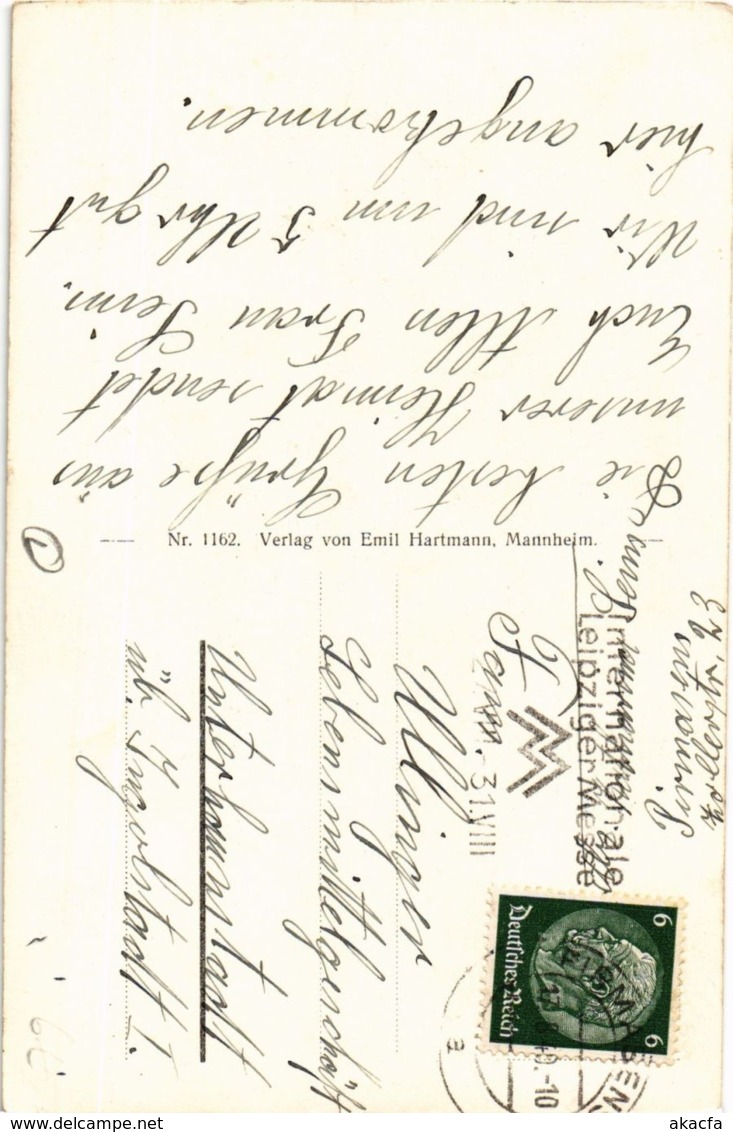 Die besten Grüße aus
unserer Heimat sendet
Euch Allen Frau Seim.
Wir sind um 5 Uhr gut
hier angekommen.
Nr. 1162. Verlag von Emil Hartmann, Mannheim.
Fam.
Ullinger
Lebensmittelgeschäft
Unterhaunstadt
üb. Ingolstadt I.
Internationale
Leipziger Messe
31.VIII
Pirmasens
6
6
Deutsches Reich
a
akacfa
www.delcampe.net